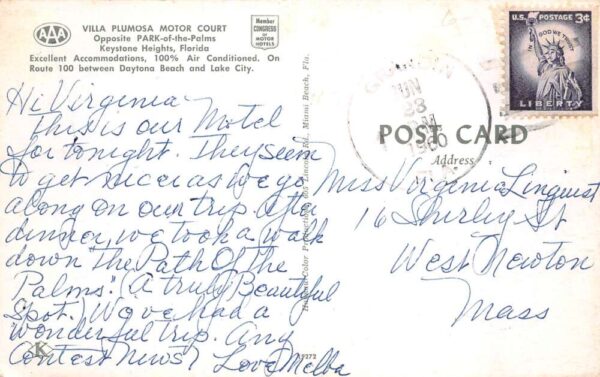 AAA
VILLA PLUMOSA MOTOR COURT
Opposite PARK-of-the-Palms
Keystone Heights, Florida
Excellent Accommodations, 100% Air Conditioned. On
Route 100 between Daytona Beach and Lake City.
Member
CONGRESS
OF
MOTOR
HOTELS
Hi Virginia
This is our Motel
for tonight. They seem
to get nicer as we go
along on our trip. After
dinner, we took a walk
down "the Path Of the
Palms". (A truly Beautiful
Spot.) We've had a
wonderful trip. Any
Contest News?
Love Melba
K
Color Productions, Lincoln Rd., Miami Beach, Fla.
5272
U.S. POSTAGE 3¢
IN GOD WE TRUST
LIBERTY
23
1960
POST CARD
Address
Miss Virginia Linquist
16 Shirley St
West Newton
Mass